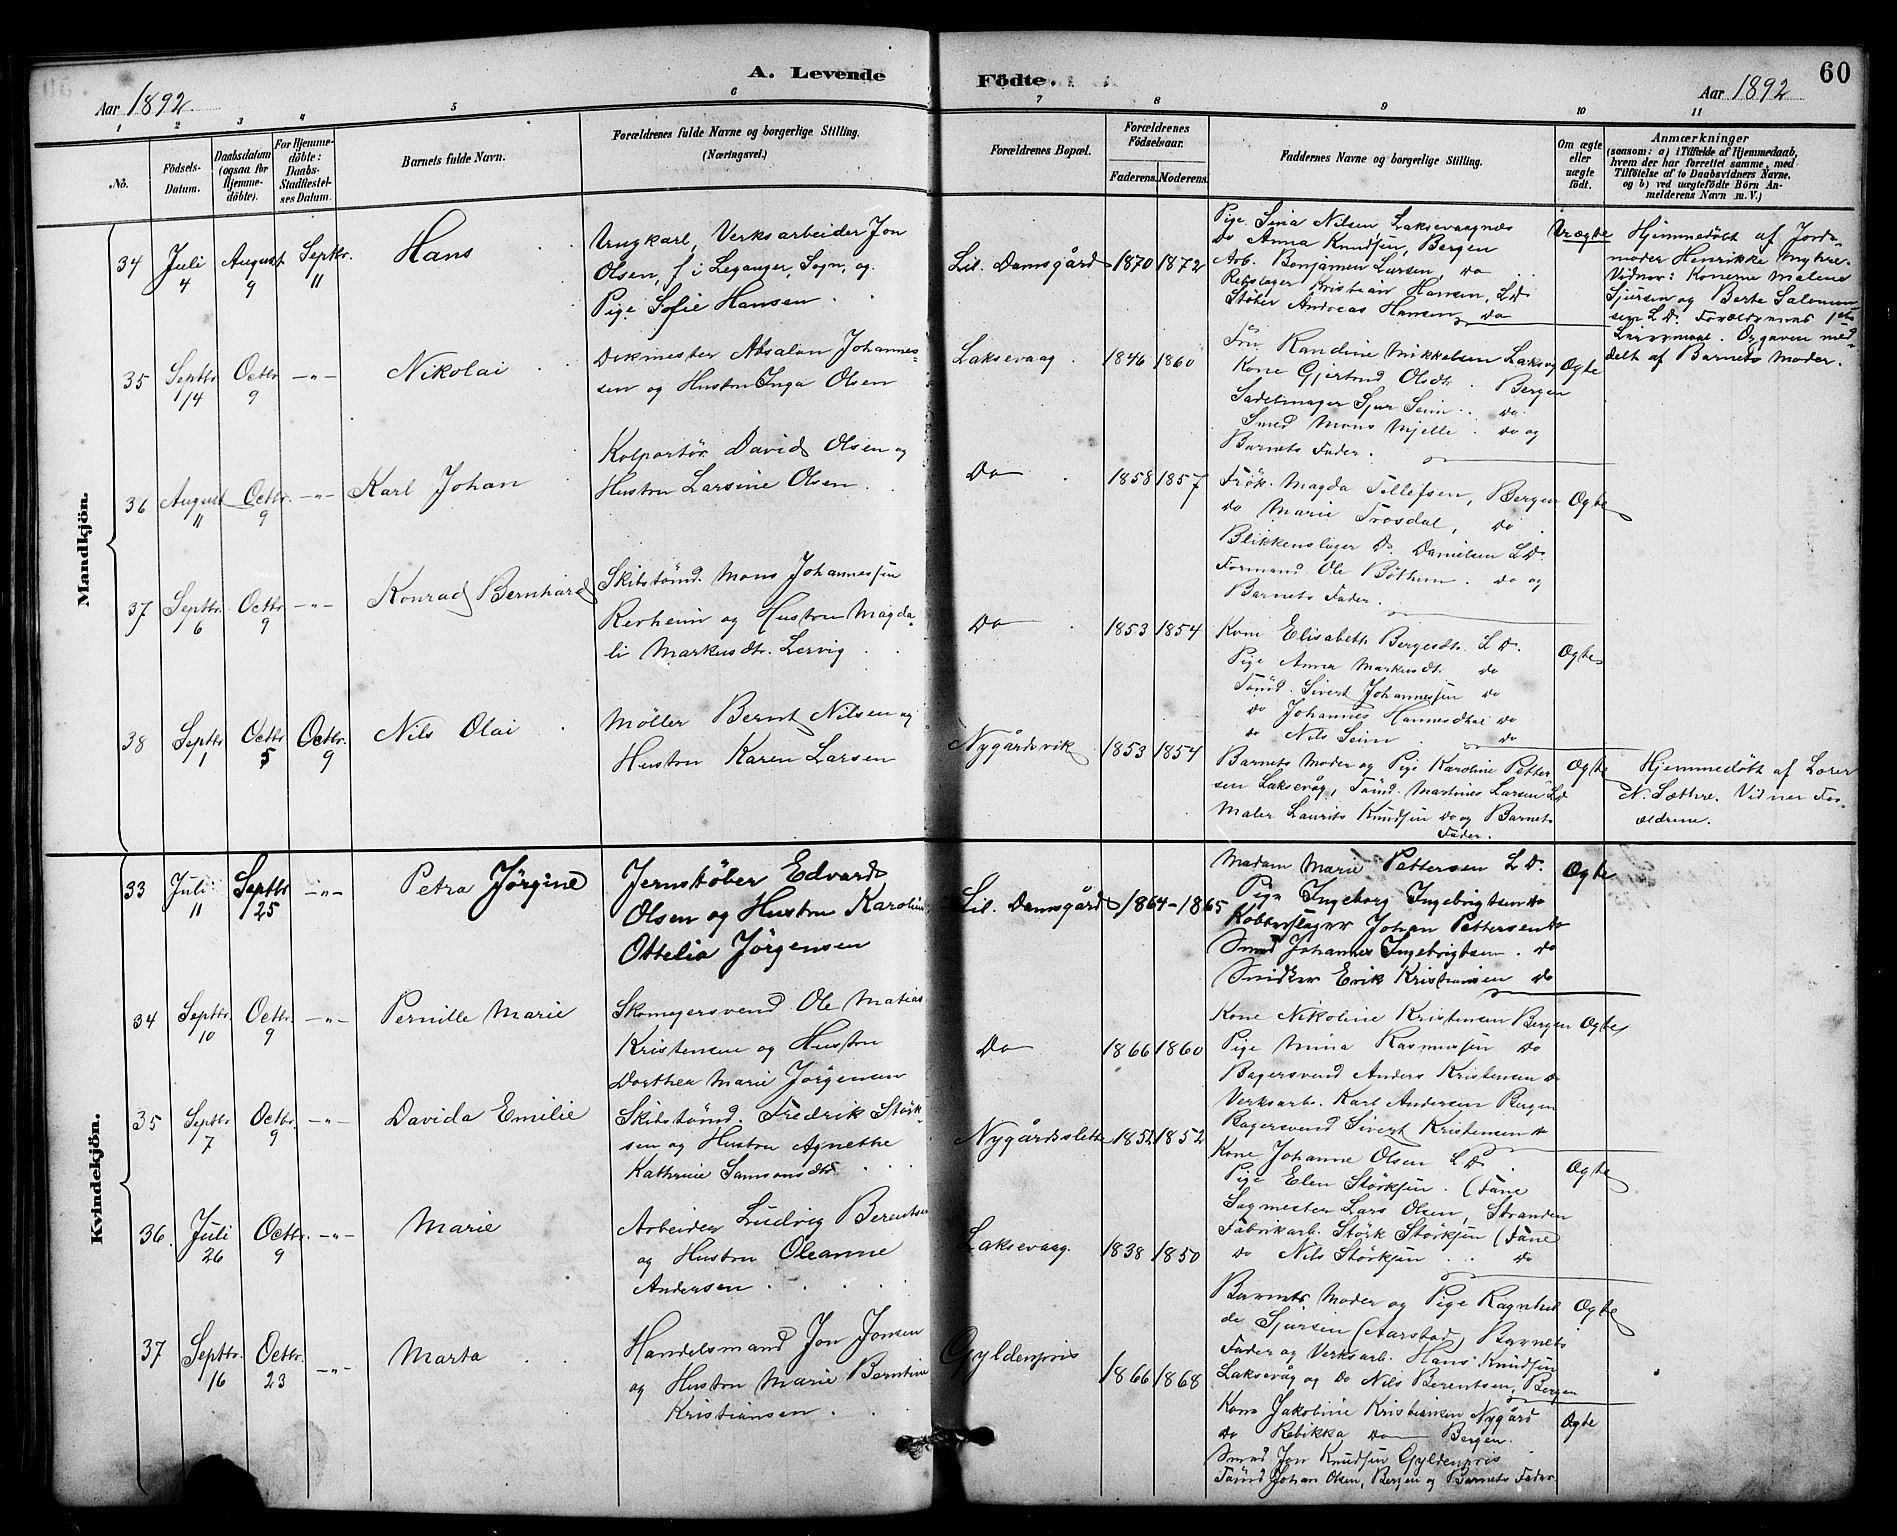 A. Levende
Aar 1892
1 2 3 4 5 6
No.
Födsels-
Datum.
Daabsdatum
(ogsaa for
Hjemme-
döbte).
For Hjemme-
döbte:
Daabs-
Stadfæstel-
ses Datum.
Barnets fulde Navn.
Forældrenes fulde Navne og borgerlige Stilling.
(Næringsvei.)
Mandkjön.
34 Juli 4 August 9 Septbr. 11 Hans
Ungkarl, Verksarbeider Jon
Olsen, f. i Leganger, Sogn, og
Pige Sofie Hansen
35 Septbr 14 Octbr 9 -"- Nikolai
Dokmester Absalon Johannes-
sen og Hustru Inga Olsen
36 August 11 Octbr. 9 -"- Karl Johan
Kolportör David Olsen og
Hustru Larsine Olsen
37 Septbr. 6 Octbr. 9 -"- Konrad Bernhard
Skibstömd. Mons Johannessen
Rerheim og Hustru Magda-
li Markusdtr. Lervig
38 Septbr 1 Octbr 5 Octbr. 9 Nils Olai
Möller Bernt Nilsen og
Hustru Karen Larsen
Kvindekjön.
33 Juli 11 Septbr 25 -"- Petra Jörgine
Jernstöber Edvard
Olsen og Hustru Karoline
Ottelia Jörgensen
34 Septbr. 10 Octbr. 9 -"- Pernille Marie
Skomagersvend Ole Matias
Kristensen og Hustru
Dorthea Marie Jörgensen
35 Septbr 7 Octbr. 9 -"- Davida Emilie
Skibstömd. Fredrik Störk-
sen og Hustru Agnethe
Kathrine Samsonsdtr.
36. Juli 26 Octbr. 9 -"- Marie
Arbeider Ludvig Berentsen
og Hustru Oleanne
Andersen
37 Septbr. 16 Octbr. 23 -"- Marta
Handelsmand Jon Jonsen
og Hustru Marie Berntine
Kristiansen
Födte.
60
Aar 1892
7 8 9 10 11
Forældrenes Bopæl.
Forældrenes
Födselsaar.
Faderens. Moderens.
Faddernes Navne og borgerlige Stilling.
Om ægte
eller
uægte
födt.
Anmærkninger
(saasom: a) i Tilfælde af Hjemmedaab,
hvem der har forrettet samme, med
Tilföielse af to Daabsvidners Navne.
og b) ved uægtefödte Börn An-
melderens Navn m. V.)
Lil. Damsgård 1870 1872
Pige Sina Nilsen Laksevaagnæs
Do Anna Knudsen, Bergen
Arb. Benjamin Larsen, do
Rebslager Kristian Hansen, L.D.
Stöber Andreas Hansen do
Uægte
Hjemmedöbt af Jorde-
moder Henrikke Myhre.
Vidner: Konerne Malene
Sjursen og Berte Salomon-
sen L.D. Forældrenes 1ste
Leiermaal. Opgaven med-
delt af Barnets Moder.
Laksevaag 1846 1860
Fru Randine Mikkelsen Laksvåg
Kone Gjertrud Olsdtr. Bergen
Sadelmager Sjur Seim do
Smed Mons Mjelle do og
Barnets Fader.
Ægte
Do 1858 1857
Frök. Magda Tellefsen, Bergen
do Marie Trosdal, do
Blikkenslager D. Danielsen L.D.
Formand Ole Böthun do og
Barnets Fader.
Ægte
Do 1853 1854
Kone Elisabeth Bergesdtr. L.D.
Pige Anna Markusdtr. do
Tömd. Sivert Johannessen do
do Johannes Hannesdal do
do Nils Seim do
Ægte
Nygårdsvik 1853 1854
Barnets Moder og Pige Karoline Petter-
sen Laksevåg, Tömd. Martines Larsen L.D
Maler Laurits Knudsen do og Barnets
Fader.
Ægte
Hjemmedöbt af Lærer
N. Sæthre. Vidner For-
ældrene.
Lil. Damsgård 1864-1865
Madam Marie Pettersen L.D.
Pige Ingeborg Ingebrigtsen do
Kobberslager Johan Pettersen do
Smed Johannes Ingebrigtsen do
Snidker Erik Kristiansen do
Ægte
Do 1866 1860
Kone Nikoline Kristensen Bergen
Pige Mina Rasmussen do
Bagersvend Anders Kristensen do
Verksarb. Karl Andersen Bergen
Bagersvend Sivert Kristensen do
Ægte
Nygårdslette 1852 1852
Kone Johanne Olsen L.D.
Pige Elen Störksen (Fane
Sagmester Lars Olsen, Stranden
Fabrikarb. Störk Störksen (Fane)
do Nils Störksen do
Ægte
Laksevaag. 1838 1850
Barnets Moder og Pige Ragnhil
de Sjursen (Aarstad) Barnets
Fader og Verksarb. Hans Knudsen
Laksevåg og Do Nils Berentsen, Bergen
Ægte
Gyldenpris 1866 1868
Kone Jakoline Kristiansen Nygård
do Rebikka Do Bergen
Smed Jon Knudsen Gyldenpris
Tömd Johan Olsen, Bergen og Barnets Fader
Ægte